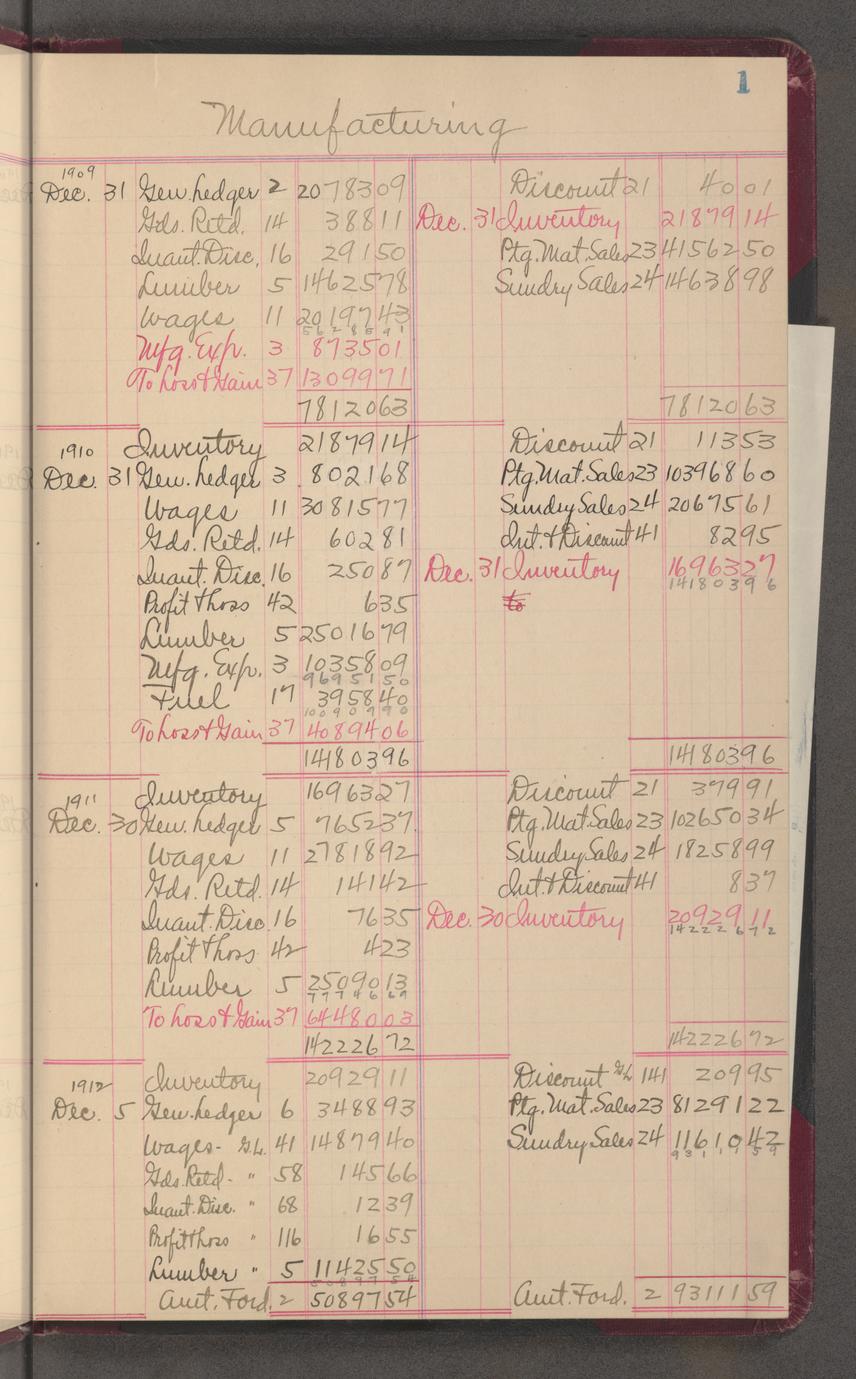 1
Manufacturing
1909
Dec. 31 Gen. Ledger 2 2078309 Discount 21 4001
Gds. Retd. 14 38811 Dec. 31 Inventory 2187914
Quant. Disc. 16 29150 Ptg. Mat. Sales 23 4156250
Lumber 5 1462578 Sundry Sales 24 1463898
Wages 11 2019743
5628591
Mfg. Exp. 3 873501
To Loss & Gain 37 1309971
7812063 7812063
1910 Inventory 2187914 Discount 21 11353
Dec. 31 Gen. Ledger 3 802168 Ptg. Mat. Sales 23 10396860
Wages 11 3081577 Sundry Sales 24 2067561
Gds. Retd. 14 60281 Int. & Discount 41 8295
Quant. Disc. 16 25087 Dec. 31 Inventory 1696327
14180396
Profit & Loss 42 635 to
Lumber 5 2501679
Mfg. Exp. 3 1035809
9695150
Fuel 17 395840
10090990
To Loss & Gain 37 4089406
14180396 14180396
1911 Inventory 1696327 Discount 21 37991
Dec. 30 Gen. Ledger 5 765237 Ptg. Mat. Sales 23 10265034
Wages 11 2781892 Sundry Sales 24 1825899
Gds. Retd. 14 14142 Int. & Discount 41 837
Quant. Disc. 16 7635 Dec. 30 Inventory 2092911
14222672
Profit & Loss 42 423
Lumber 5 2509013
7774669
To Loss & Gain 37 6448003
14222672 14222672
1912 Inventory 2092911 Discount G.L. 141 20995
Dec. 5 Gen. Ledger 6 348893 Ptg. Mat. Sales 23 8129122
Wages - G.L. 41 1487940 Sundry Sales 24 1161042
9311159
Gds. Retd - " 58 14566
Quant. Disc. " 68 1239
Profit & Loss " 116 1655
Lumber " 5 1142550
5089754
Amt. Ford. 2 5089754 Amt. Ford. 2 9311159